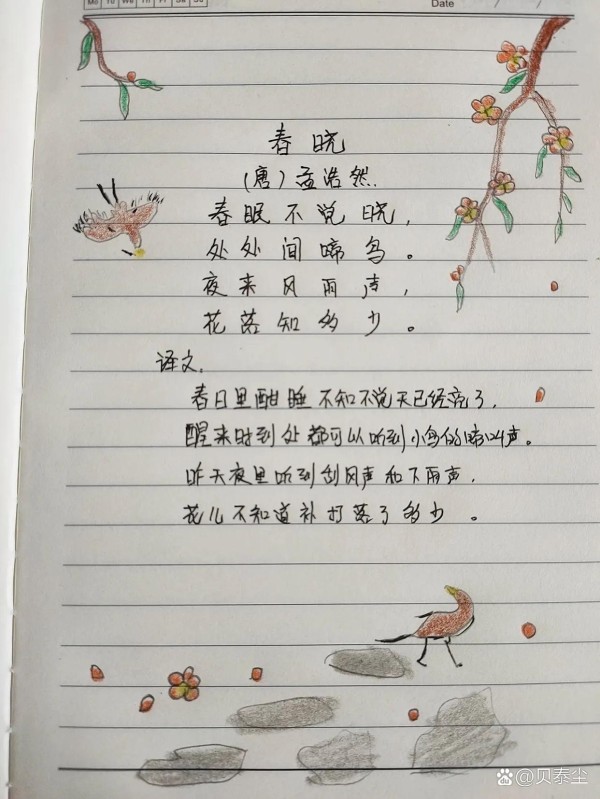 Mo Tu We Th Fr Sa Su
Date
春晓
(唐)孟浩然.
春眠不觉晓,
处处闻啼鸟。
夜来风雨声,
花落知多少。
译文.
春日里酣睡不知不觉天已经亮了,
醒来时到处都可以听到小鸟的啼叫声。
昨天夜里听到刮风声和下雨声,
花儿不知道补打落了多少。
@贝泰尘